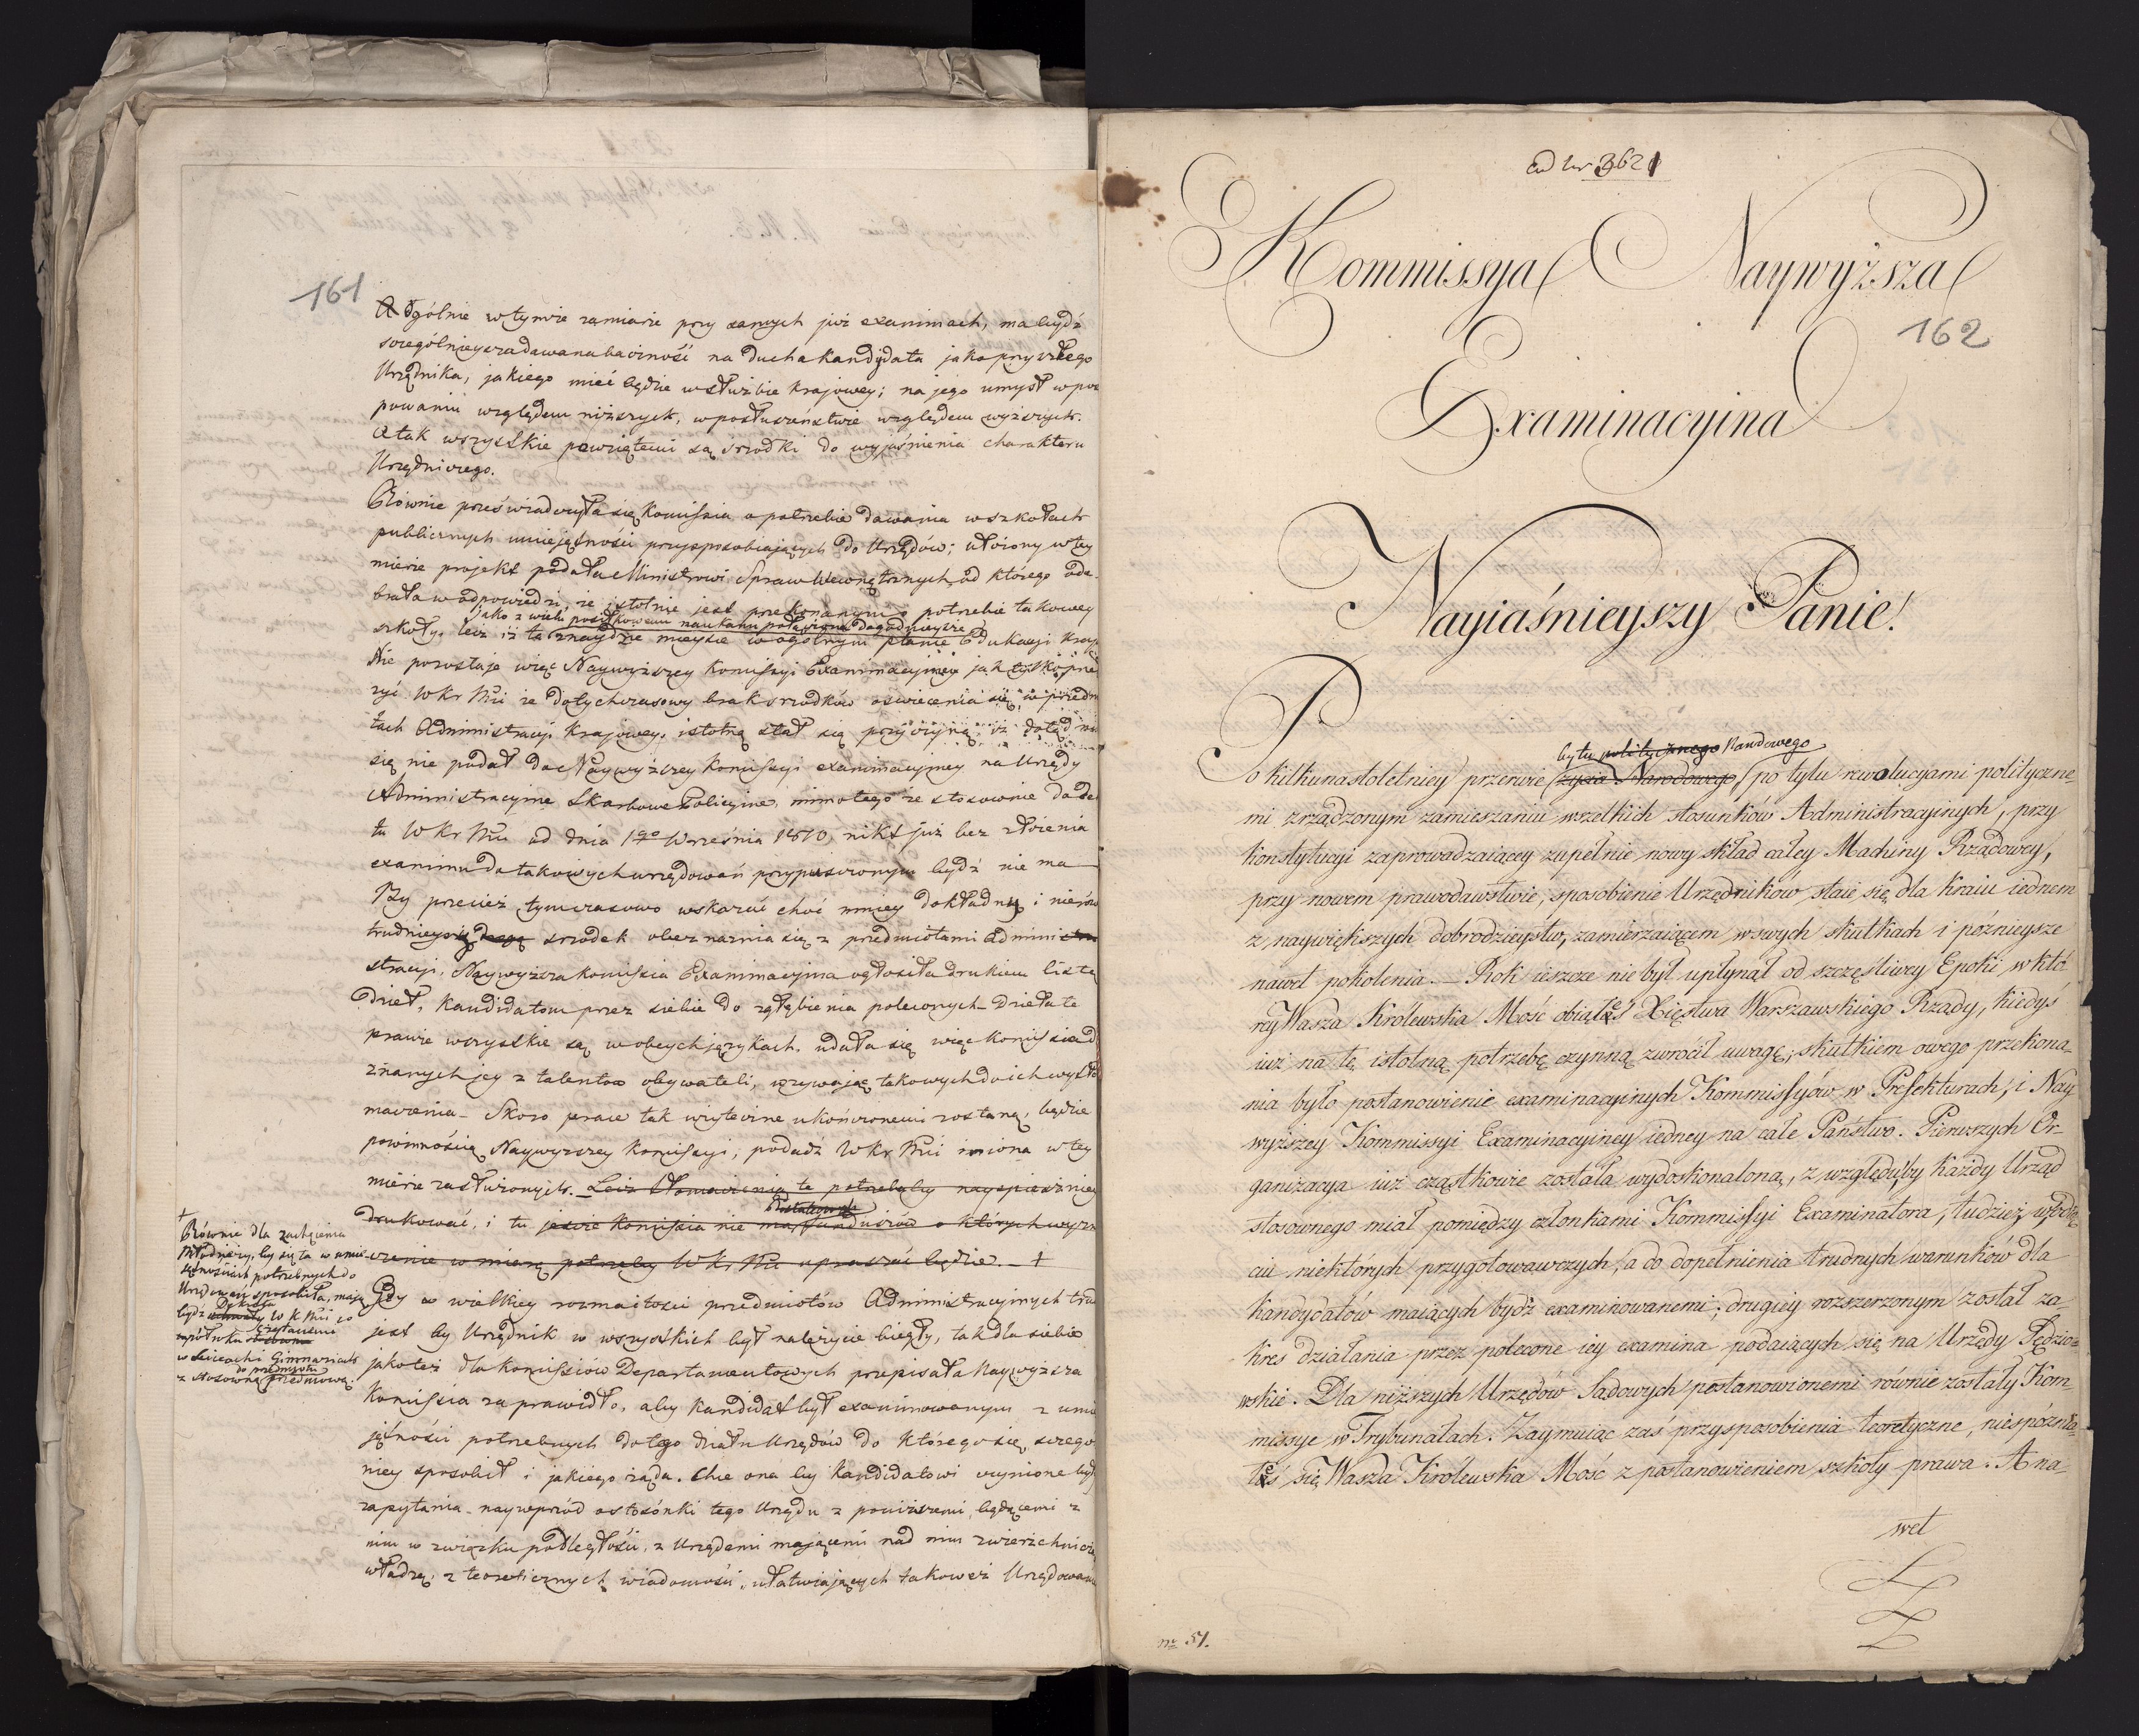 161
Ogólnie w tymże zamiarze przy samych już exáminach, ma bydź
szczególniey zradawana baczność na ducha kandydata jako przyszłego
Urzędnika, jakiego mieć będzie w służbie krajowey; na jego umysł w po
powaniu względem niższych, w posłuszeństwie względem wyższych.
A tak wszystkie powziętemi są srzodki do wyjaśnienia charakteru
Urzędniczego.
Równie przeświadczyła się Komissia o potrzebie dawania w szkołach
publicznych umiejętności przysposobiających do Urzędów; ułożony w tey
mierze projekt podała Ministrowi Spraw Wewnętrznych, od którego ode-
brała w odpowiedzi, że istotnie jest przekonanym o potrzebie takowey
jako z wielu posiłkowemi naukami połączona dogodnieysze
szkoły, lecz iż ta znaydzie mieysce w ogólnym planie Edukacyi Kray
Nie pozostaje więc Naywyższey Komissyi Examinacyiney jak tylko prze
żyć WKr Mci że dotychczasowy brak srzodków oświecenia się, w przedm
tach Administracyi Krajowey, istotną stał się przyczyną, iż dotąd ni
się nie podał do Naywyższey Komissyi examinacyiney na Urzędy
Administracyine Skarbowe Policyine, mimo tego że stosownie do De
tu WKr Mci od dnia 1go Września 1810, nikt już bez złożenia
examinu do takowych urzędowań przypuszczonym bydź nie ma
By przecież tymczasowo wskazać choć mniey dokładny i nierów
trudnieyszy drogę srzodek obeznania się z przedmiotami Admini
stracyi, Naywyższa Komissia Examinacyina ogłosiła drukiem listę
dzieł, Kandidatom przez siebie do zgłębienia poleconych. Dzieła te
prawie wszystkie są w obcych językach. udała się więc Komissia d
znanych jey z talentów obywateli, wzywając takowych do ich wytłó
maczenia. Skoro prace tak użyteczne ukończonemi zostaną, będzie
powinnością Naywyższey Komissyi, podadź WKr Mci imiona w tey
mierze zasłużonych. Lecz tłomaczenia te potrzebaby nayspieszniey
dostatecznych
drukować, i tu jeszcze Komissia nie ma funduszów o których wyzn
czenie w miarę potrzeby WKr Mci upraszać będzie. +
+
Równie dla zachęcenia
Młodzieży, by się ta w umie-
jętnościach potrzebnych do
Urzędowań sposobiła, mają
bydź WKMci po
czytanemi
w Liceach i Gimnaziach
do przedmiotu
z stosowną przedmową.
Gdy w wielkiey rozmaitości przedmiotów Administracyinych tru
jest by Urzędnik w wszystkich był należycie biegły, tak dla siebie
jako też dla Komissiów Departamentowych przepisała Naywyższa
Komissia za prawidło, aby Kandidat był examinowanym z umie
jętności potrzebnych do tego działu Urzędów do którego się szczegó
niey sposobił i jakiego żąda. Chce ona by Kandidatowi czynione były
zapytania. naywprzód o stosónki tego Urzędu z poniższemi, będącemi z
nim w związku podległości, z Urzędami mającemi nad nim zwierzchnicz
władzę; z teoretycznych wiadomości, ułatwiających takoweż Urzędowani
ad Nr 3621
162
Kommissya Naywyższa
Examinacyina
Nayiaśnieyszy Panie!
bytu politycznego Narodowego
Po kilkunastoletniey przerwie życia Narodowego, po tylu rewolucyami polityczne-
mi zrządzonym zamieszaniu wszelkich stosunków Administracyinych, przy
konstytucyi zaprowadzaiącey zupełnie nowy skład całey Machiny Rządowey,
przy nowem prawodawstwie, sposobienie Urzędników staie się dla Kraiu iednem
z naywiększych dobrodzieystw, zamierzaiącem w swych skutkach i póznieysze
nawet pokolenia. — Rok ieszcze nie był upłynął od szczęśliwey Epoki, w któ-
rey Wasza Królewska Mość obiąłeś Xięstwa Warszawskiego Rządy, kiedyś
iuż na tę istotną potrzebę czynną zwrócił uwagę; skutkiem owego przekona-
nia było postanowienie examinacyinych Kommissyów w Prefekturach, i Nay
wyższey Kommissyi Examinacyiney iedney na całe Państwo. Pierwszych Or-
ganizacya iuż cząstkowie została wydoskonaloną, z względu, by każdy Urząd
stosownego miał pomiędzy członkami Kommissyi Examinatora, tudzież, w odję
ciu niektórych przygotowawczych, a do dopełnienia trudnych warunków dla
kandydatów maiących bydź examinowanemi; drugiey rozszerzonym został za-
kres działania przez polecone iey examina podaiących się na Urzędy Sędzio-
wskie. Dla niższych Urzędów Sądowych postanowionemi równie zostały Kom-
missye w Trybunałach. Zaymuiąc zaś przysposobienia teoretyczne, niespóźnia-
łeś się Wasza Królewska Mość z postanowieniem szkoły prawa. A na-
wet
nr 51.